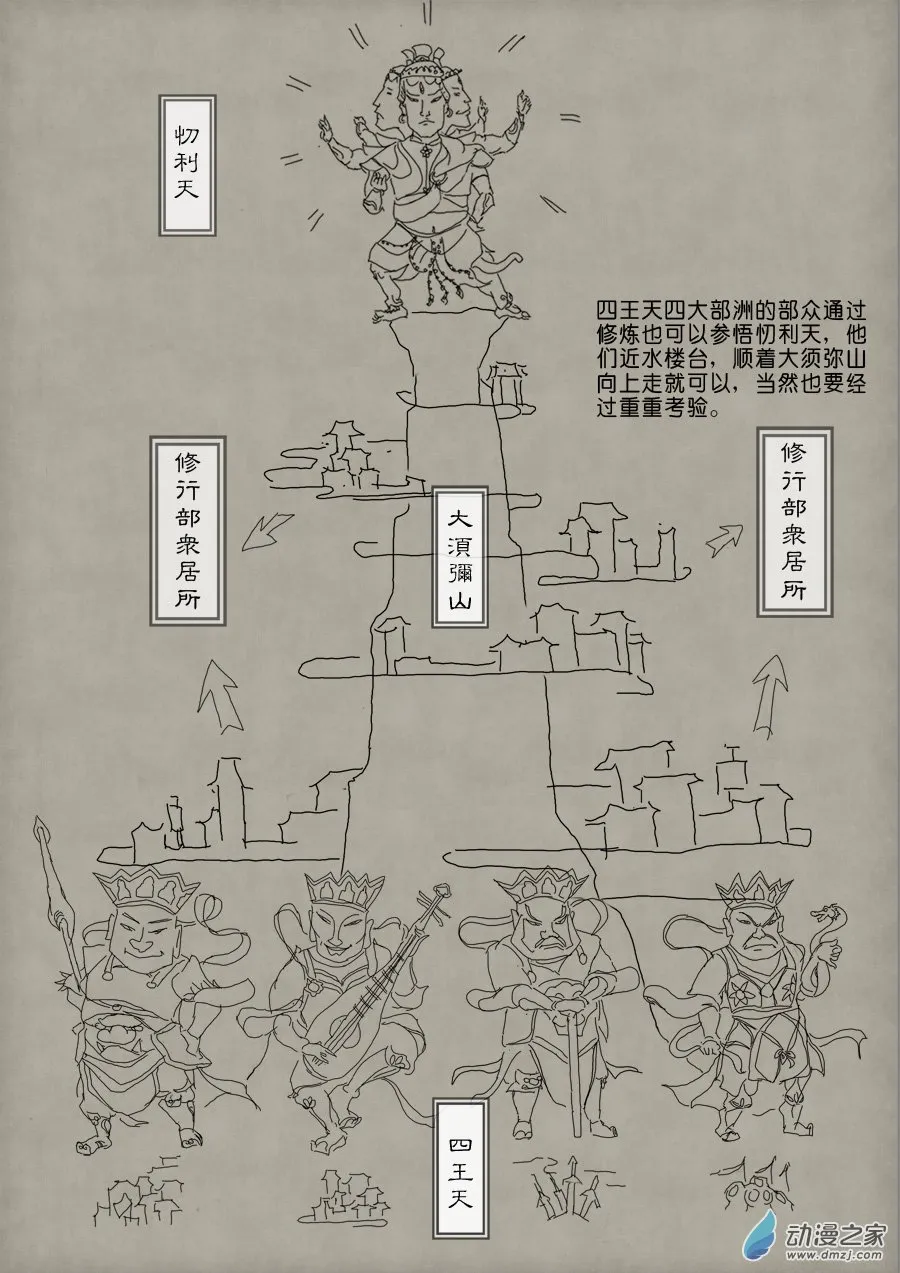 忉利天
四王天四大部洲的部众通过
修炼也可以参悟忉利天，他
们近水楼台，顺着大须弥山
向上走就可以，当然也要经
过重重考验。
修行部衆居所
大須彌山
修行部衆居所
四王天
动漫之家
www.dmzj.com